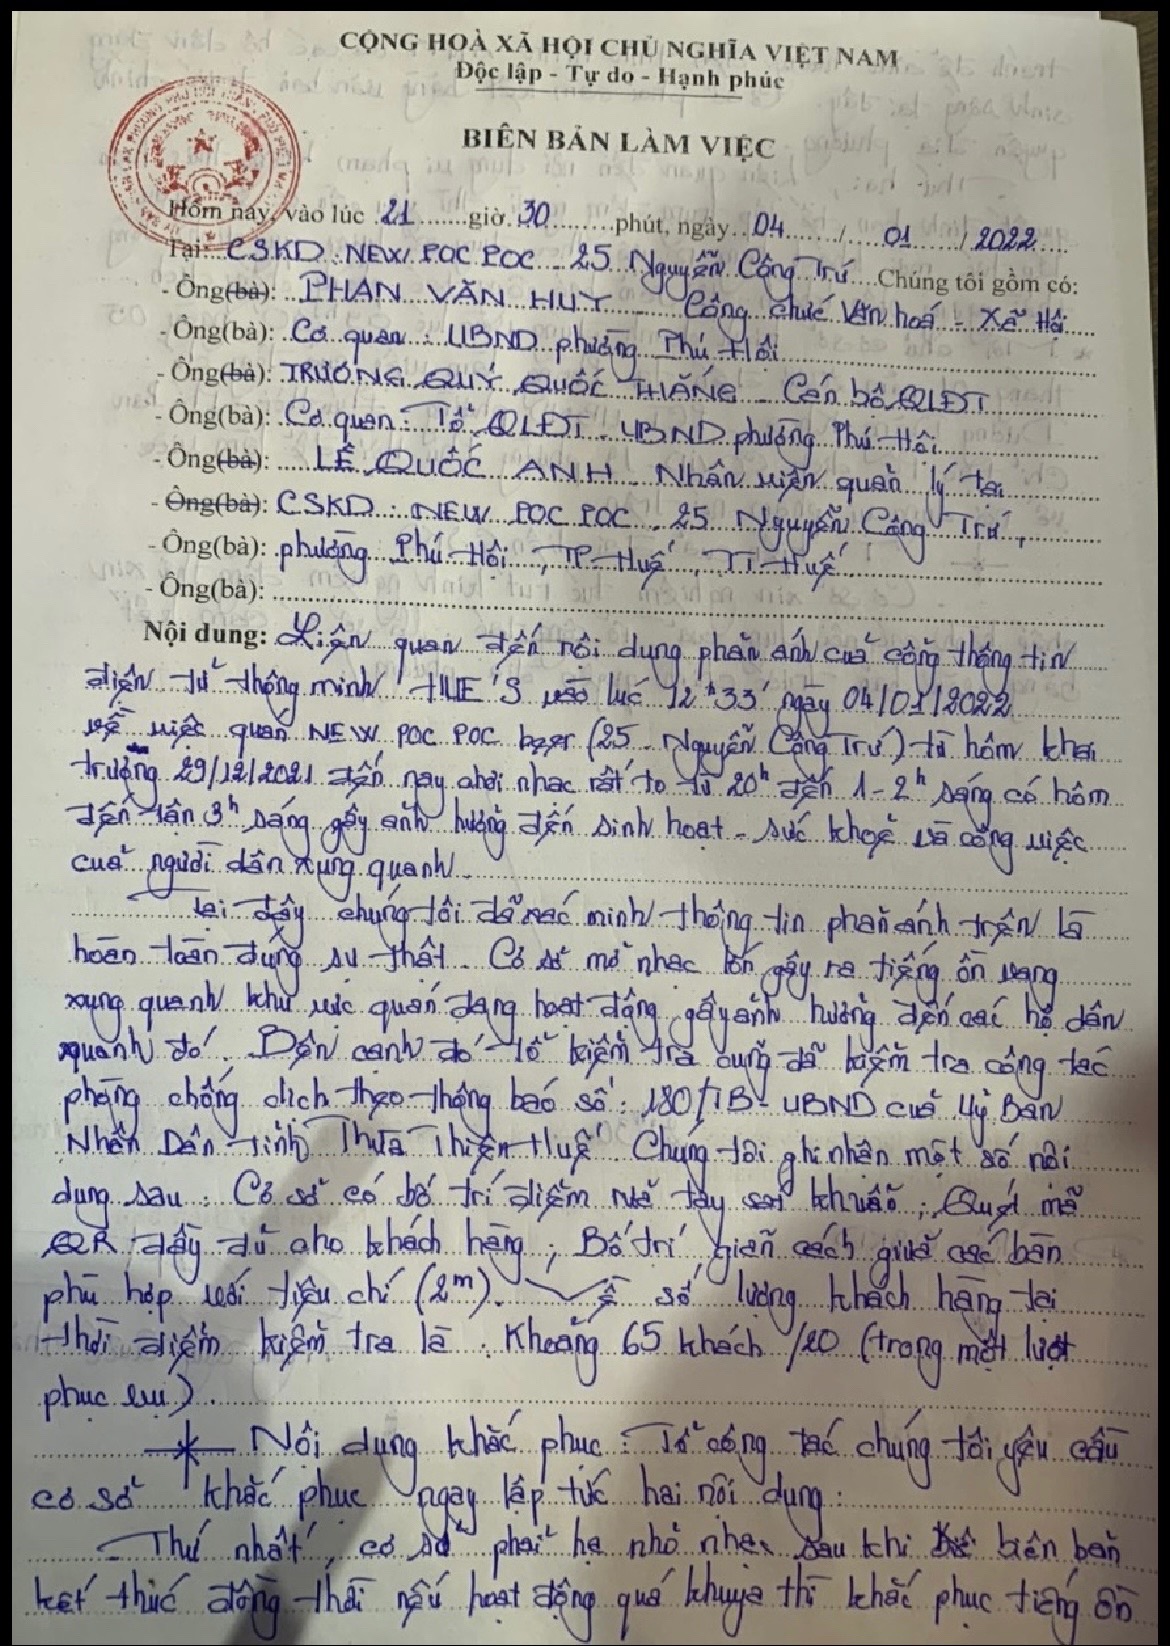 CỘNG HOÀ XÃ HỘI CHỦ NGHĨA VIỆT NAM
Độc lập - Tự do - Hạnh phúc
BIÊN BẢN LÀM VIỆC
Hôm nay, vào lúc 21 giờ 30 phút, ngày 04 / 01 / 2022
Tại CSKD: NEW POC POC - 25 Nguyễn Công Trứ Chúng tôi gồm có:
- Ông(bà): PHAN VĂN HUY - Công chức Văn hoá - Xã Hội
- Ông(bà): Cơ quan: UBND phường Phú Hội
- Ông(bà): TRƯƠNG QUÝ QUỐC THẮNG - Cán bộ QLĐT
- Ông(bà): Cơ quan: Tổ QLĐT - UBND phường Phú Hội
- Ông(bà): LÊ QUỐC ANH - Nhân viên quản lý tại
- Ông(bà): CSKD: NEW POC POC - 25 Nguyễn Công Trứ,
- Ông(bà): phường Phú Hội, TP Huế, TT Huế
- Ông(bà):
Nội dung: Liên quan đến nội dung phản ánh của cổng thông tin
điện tử thông minh HUE'S vào lúc 12h33' ngày 04/01/2022
về việc quán NEW POC POC beer (25 - Nguyễn Công Trứ) từ hôm khai
trương 29/12/2021 đến nay chơi nhạc rất to từ 20h đến 1-2h sáng có hôm
đến tận 3h sáng gây ảnh hưởng đến sinh hoạt - sức khoẻ và công việc
của người dân xung quanh.
Tại đây chúng tôi đã xác minh thông tin phản ánh trên là
hoàn toàn đúng sự thật. Cơ sở mở nhạc lớn gây ra tiếng ồn vang
xung quanh khu vực quán đang hoạt động gây ảnh hưởng đến các hộ dân
quanh đó. Bên cạnh đó tổ kiểm tra cũng đã kiểm tra công tác
phòng chống dịch theo thông báo số: 180/TB-UBND của Uỷ Ban
Nhân Dân tỉnh Thừa Thiên Huế. Chúng tôi ghi nhận một số nội
dung sau: Cơ sở có bố trí điểm rửa tay sát khuẩn; Quét mã
QR đầy đủ cho khách hàng; Bố trí giãn cách giữa các bàn
phù hợp với tiêu chí (2m). Về số lượng khách hàng tại
thời điểm kiểm tra là: Khoảng 65 khách /20 (trong một lượt
phục vụ).
* Nội dung khắc phục: Tổ công tác chúng tôi yêu cầu
cơ sở khắc phục ngay lập tức hai nội dung:
- Thứ nhất, cơ sở phải hạ nhỏ nhạc sau khi biên bản
kết thúc đồng thời nếu hoạt động quá khuya thì khắc phục tiếng ồn